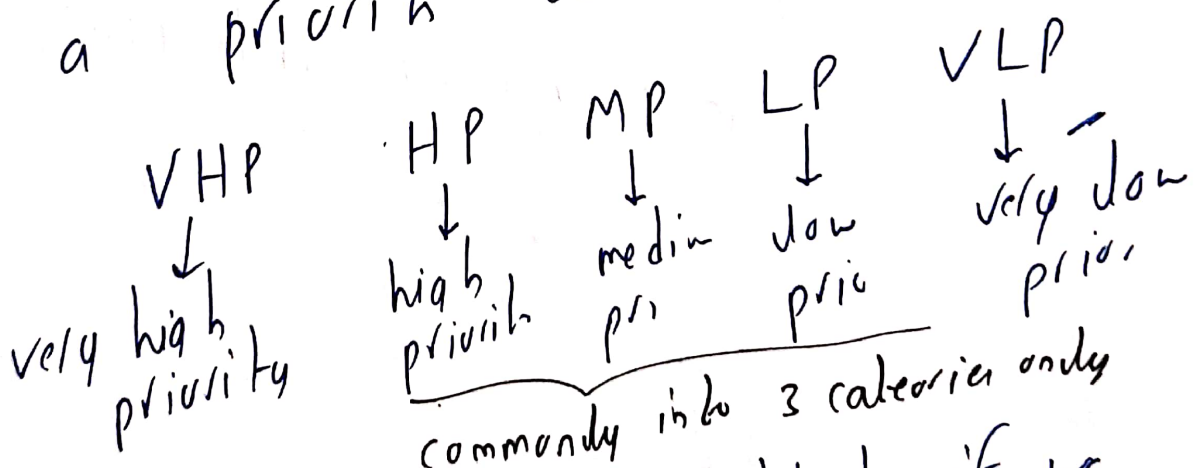 a priorih
VHP HP MP LP VLP
very high priority
high priorih
medim pri
low pric
very low prio.
commonly into 3 cateories only
if